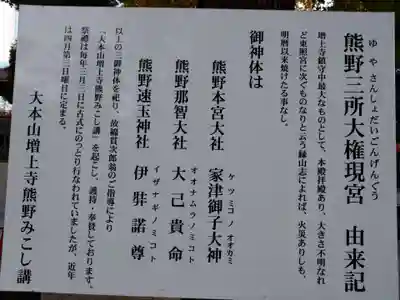 ゆやさんしょだいごんげんぐう
熊野三所大権現宮 由来記
増上寺鎮守中最大なるものとして、本殿拝殿あり、大きさ不明なれ
ど東照宮に次ぐものなりと云う縁山志によれば、火災ありしも、
明暦以来焼けたる事なし。
御神体は
熊野本宮大社 家津御子大神
ケツミコノオオカミ
熊野那智大社 大己貴命
オオナムラノミコト
熊野速玉神社 伊弉諾尊
イザナギノミコト
以上の三御神体を祀り、故綿貫次郎翁のご指導により
「大本山増上寺熊野みこし講」を起こし、護持・奉賛しております。
祭禮は毎年三月三日に古式にのっとり行なわれていましたが、近年
は四月第三日曜日に定まる。
大本山増上寺熊野みこし講